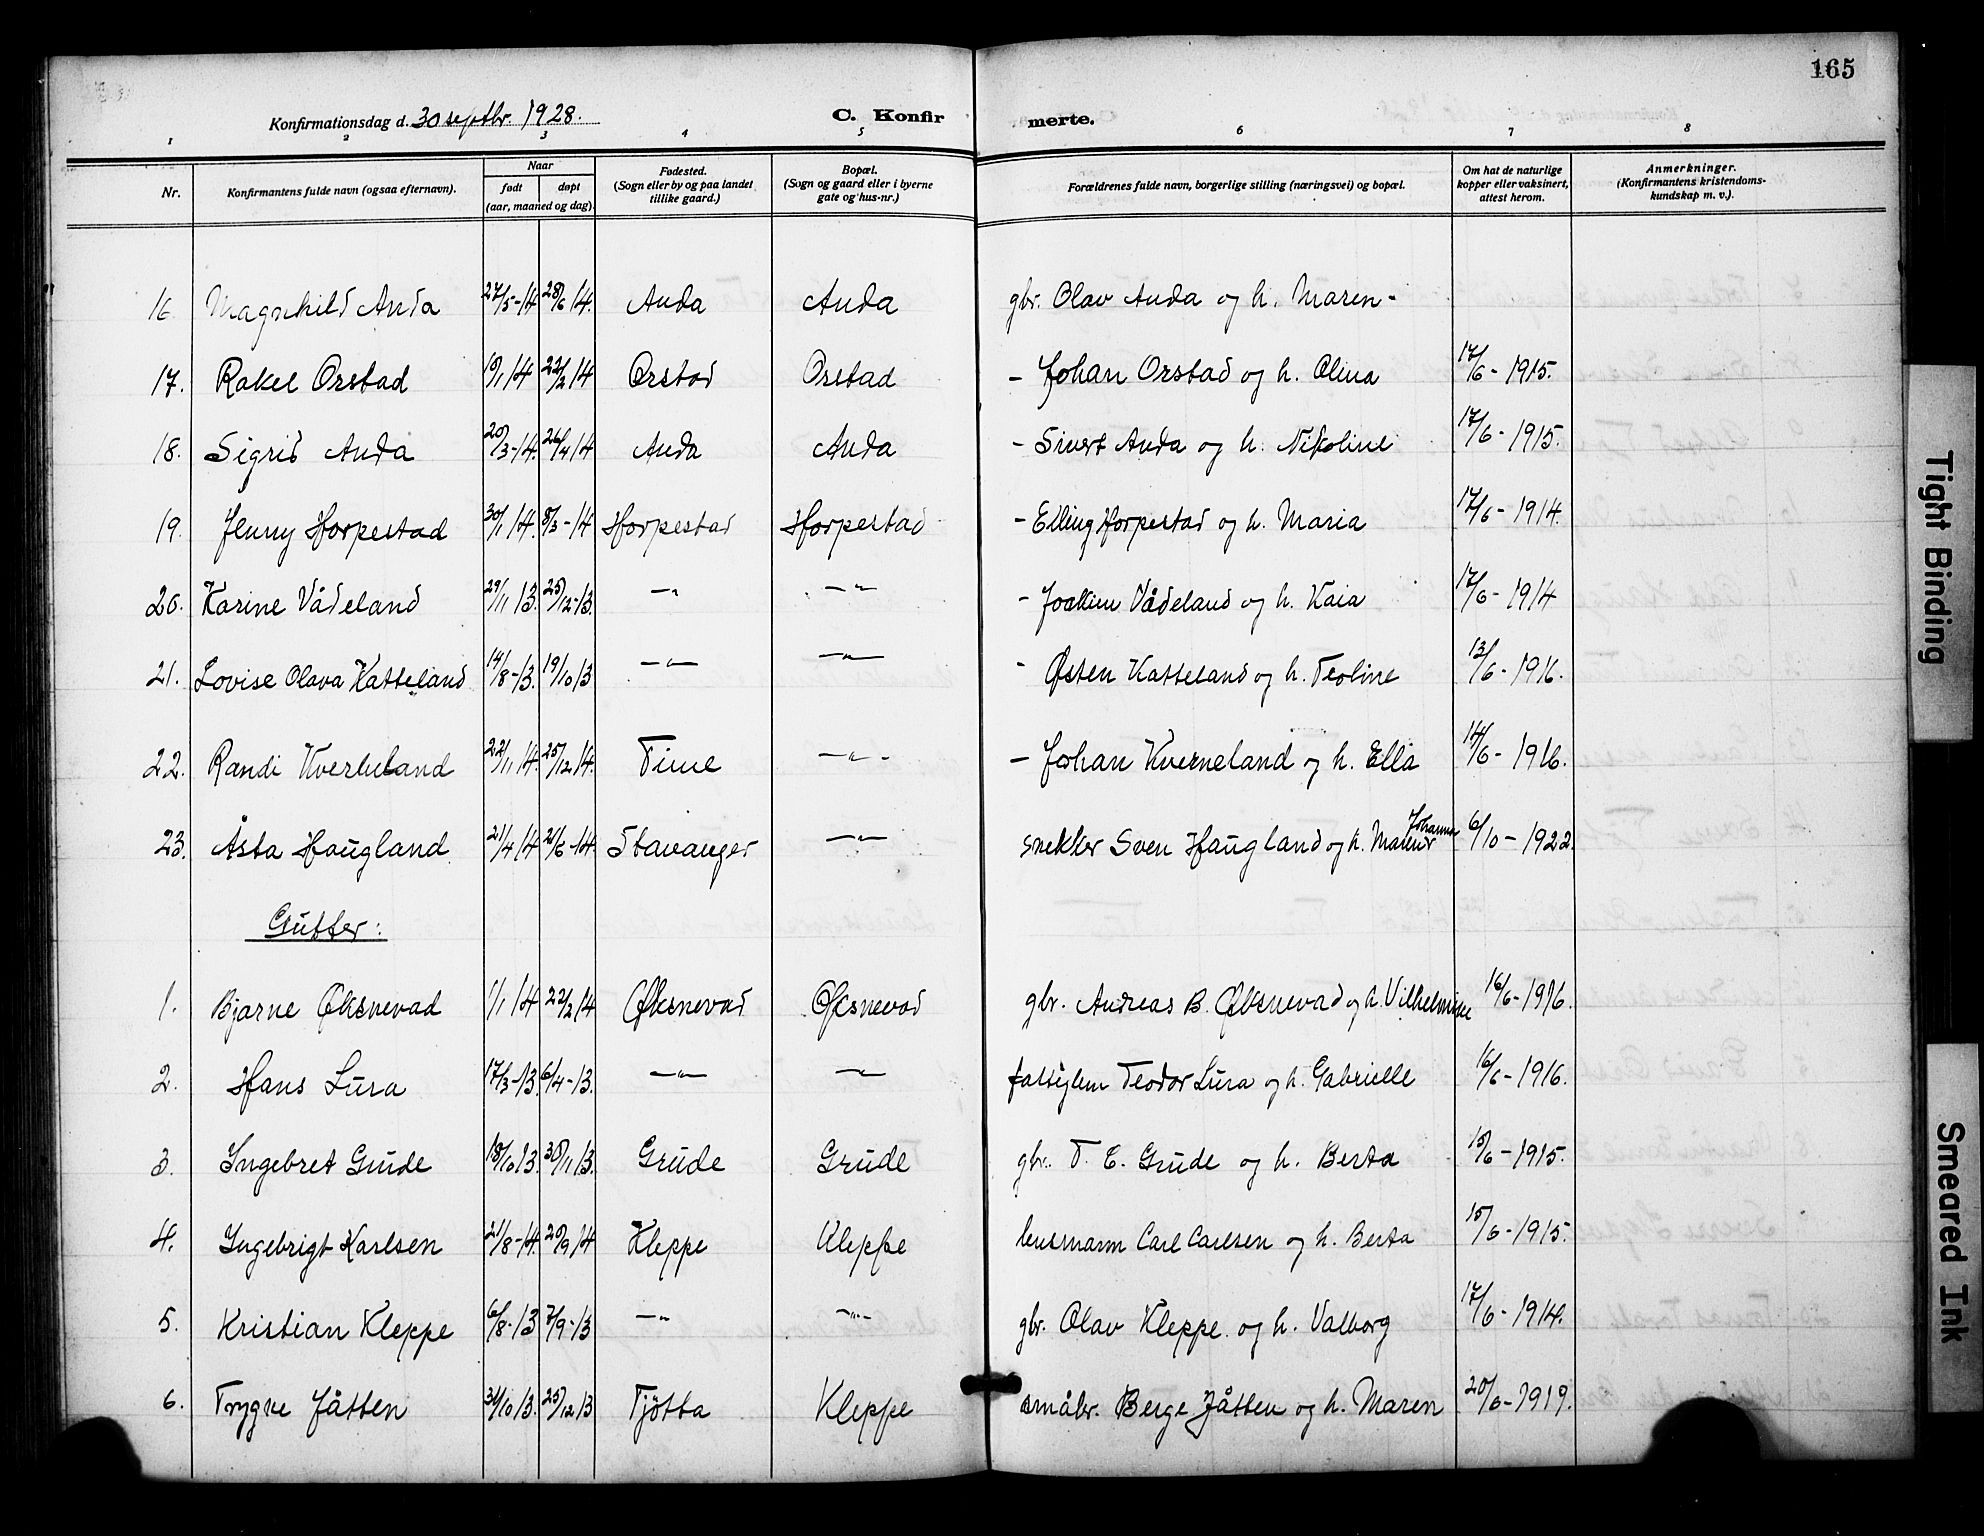 165
Konfirmationsdag d. 30 septbr. 1928. C. Konfir merte.
1 2 3 4 5 6 7 8
Nr. Konfirmantens fulde navn (ogsaa efternavn). Naar født døpt (aar, maaned og dag). Fødested. (Sogn eller by og paa landet tillike gaard.) Bopæl. (Sogn og gaard eller i byerne gate og hus-nr.) Forældrenes fulde navn, borgerlige stilling (næringsvei) og bopæl. Om hat de naturlige kopper eller vaksinert, attest herom. Anmerkninger. (Konfirmantens kristendoms-kundskap m. v.).
16. Magnhild Anda 27/5-14 28/6 14. Anda Anda gbr. Olav Anda og h. Maren -
17. Rakel Orstad 10/1 14 22/2 14 Orstad Orstad - Johan Orstad og h. Olina 17/6 - 1915.
18. Sigrid Anda 20/3-14. 26/4 14 Anda Anda - Sivert Anda og h. Nikoline 17/6 - 1915.
19. Jenny Horpestad 30/1 14. 8/3-14 Horpestad Horpestad - Elling Horpestad og h. Maria 17/6 - 1914.
20. Karine Vådeland 29/11 13. 25/12-13. -"- -"- - Joakim Vådeland og h. Kaia 17/6 - 1914
21. Lovise Olava Katteland 14/8-13. 19/10 13 -"- -"- - Østen Katteland og h. Teoline 13/6 - 1916.
22. Randi Kverneland 22/11 14. 25/12 14. Time -"- - Johan Kverneland og h. Ella 14/6 - 1916.
23. Åsta Haugland 21/4 14 21/6-14. Stavanger -"- snekker Sven Haugland og h. Maren Johanna 6/10 - 1922.
Gutter:
1. Bjarne Øksnevad 1/1 14 22/2 14 Øksnevad Øksnevad gbr. Andreas B. Øksnevad og h. Vilhelmine 16/6 - 1916.
2. Hans Lura 17/3-13. 6/4-13. -"- -"- fattiglem Teodor Lura og h. Gabrielle 16/6 - 1916.
3. Ingebret Grude 18/10 13. 30/11 13. Grude Grude gbr. T. E. Grude og h. Berta 15/6 - 1915.
4. Ingebrigt Karlsen 21/8-14. 20/9 14 Kleppe Kleppe husmann Carl Carlsen og h. Berta 15/6 - 1915.
5. Kristian Kleppe 6/8-13 7/9-13 -"- -"- gbr. Olav Kleppe og h. Valborg 17/6 - 1914.
6. Trygve Jåtten 31/10 13. 25/12 13 Tjøtta Kleppe småbr. Berge Jåtten og h. Maren 20/6 - 1919.
Tight Binding
Smeared Ink